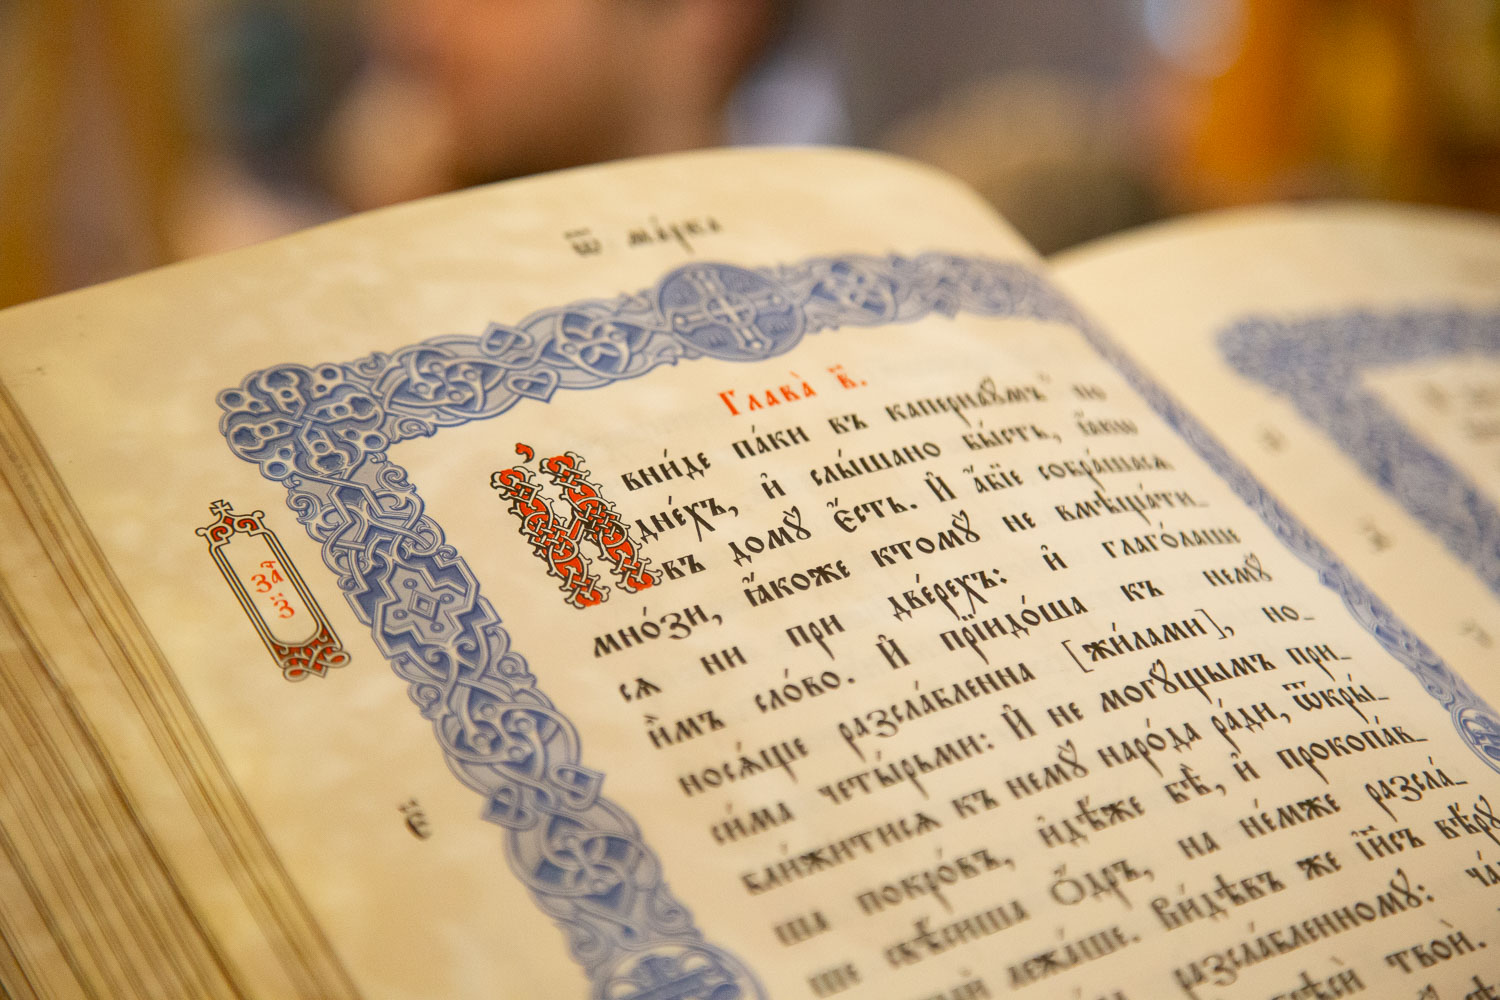 ѿ ма́рка
Глава̀ в҃.
И҆ вни́де па́ки въ капернаꙋ́мъ по
дне́хъ, и҆ слы́шано бы́сть, ꙗ҆́кѡ
въ домꙋ̀ є҆́сть. И҆ а҆́бїе собра́шасѧ
мно́зи, ꙗ҆́коже ктомꙋ̀ не вмѣща́ти_
сѧ ни при две́рехъ: и҆ глаго́лаше
и҆̀мъ сло́во. И҆ прїидо́ша къ немꙋ̀
носѧ́ще разсла́бленна [жи́лами], но_
си́ма четы́рьми: И҆ не могꙋ́щымъ при_
бли́житисѧ къ немꙋ̀ наро́да ра́ди, ѿкры́_
ша покро́въ, и҆дѣ́же бѣ̀, и҆ прокопа́в_
ше свѣ́сиша ѻ҆́дръ, на не́мже разсла́_
лежа́ше. Ви́дѣвъ же і҆и҃съ вѣ́рꙋ
разсла́бленномꙋ:
твоѝ.
за҄
з҃